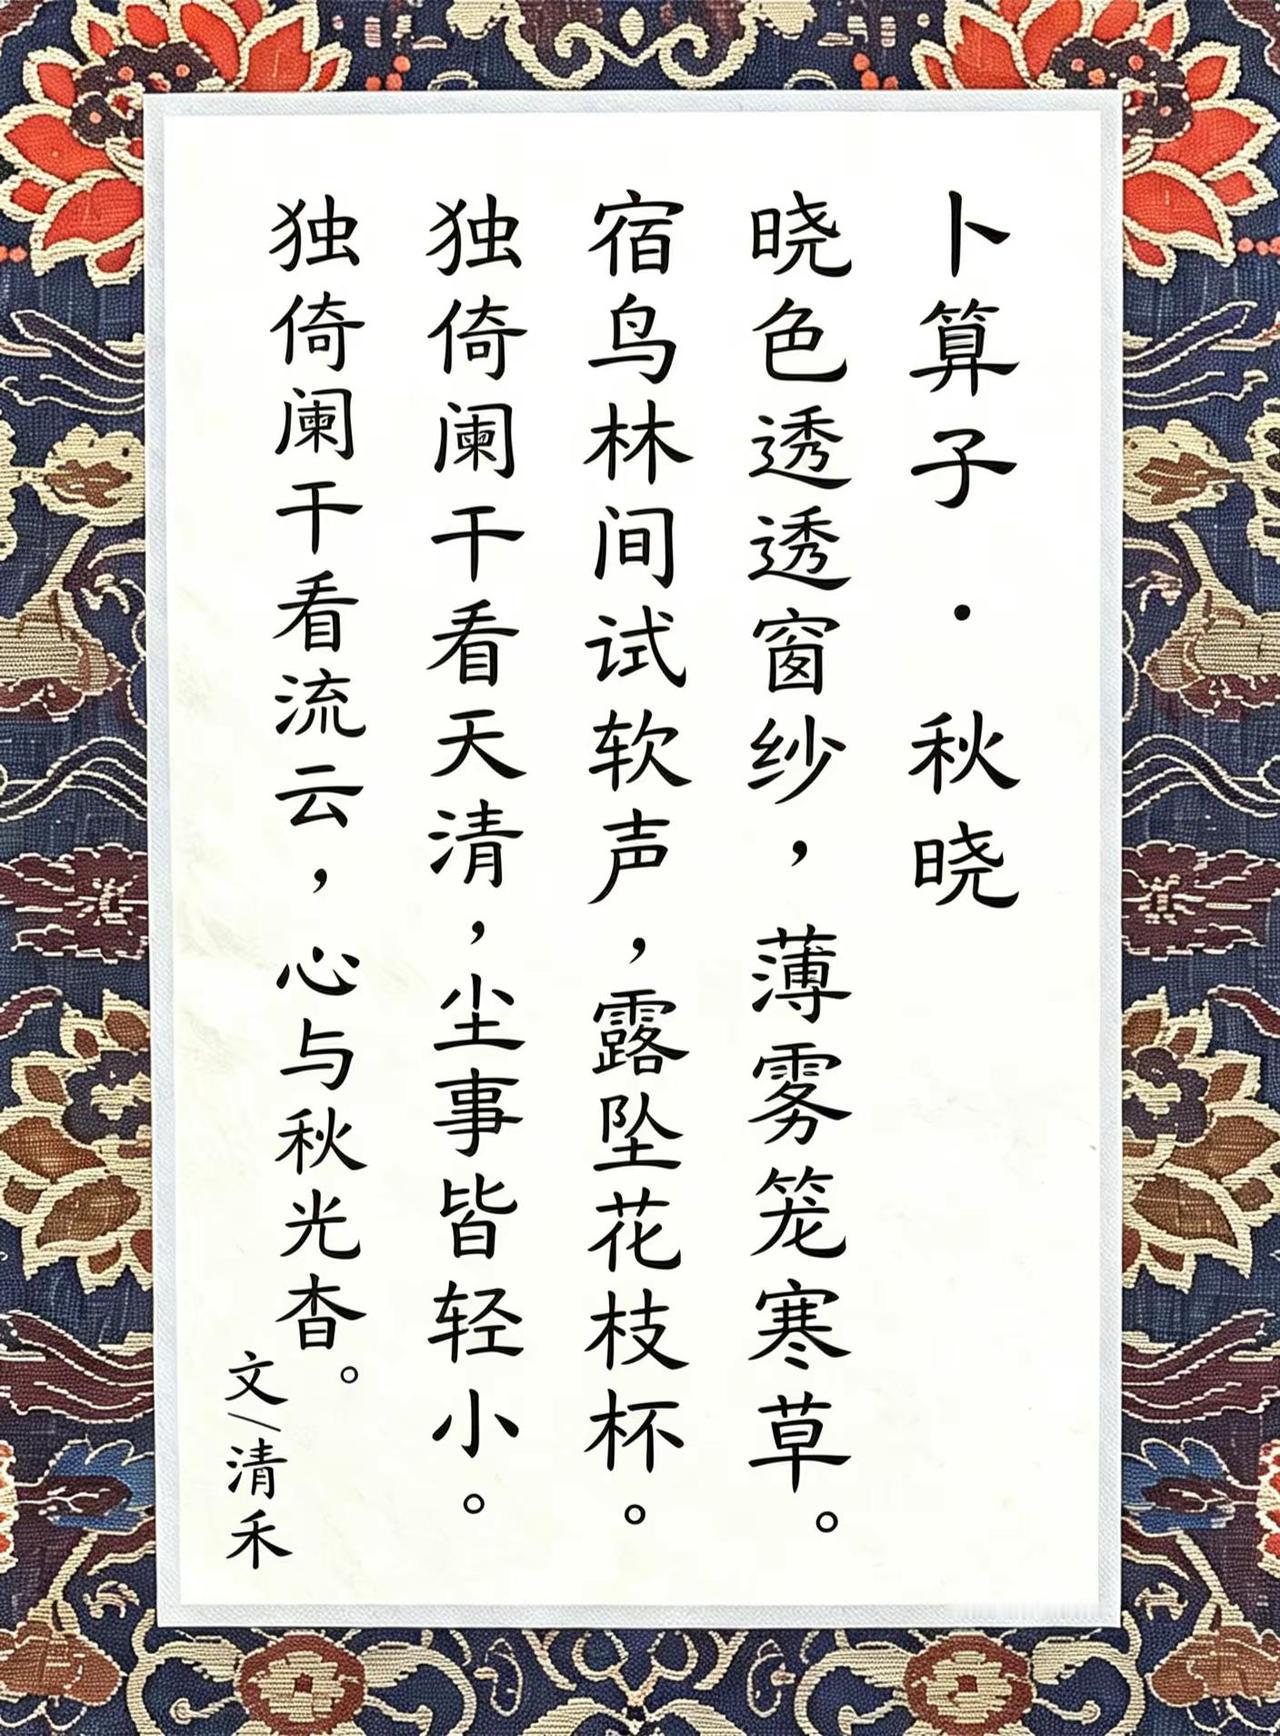 卜算子·秋晓
晓色透透窗纱，薄雾笼寒草。
宿鸟林间试软声，露坠花枝杯。
独倚阑干看天清，尘事皆轻小。
独倚阑干看流云，心与秋光杳。
文\清禾